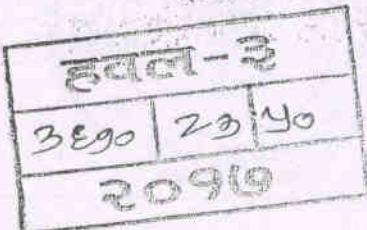 हवल-३
३६१० ५०
२०१७